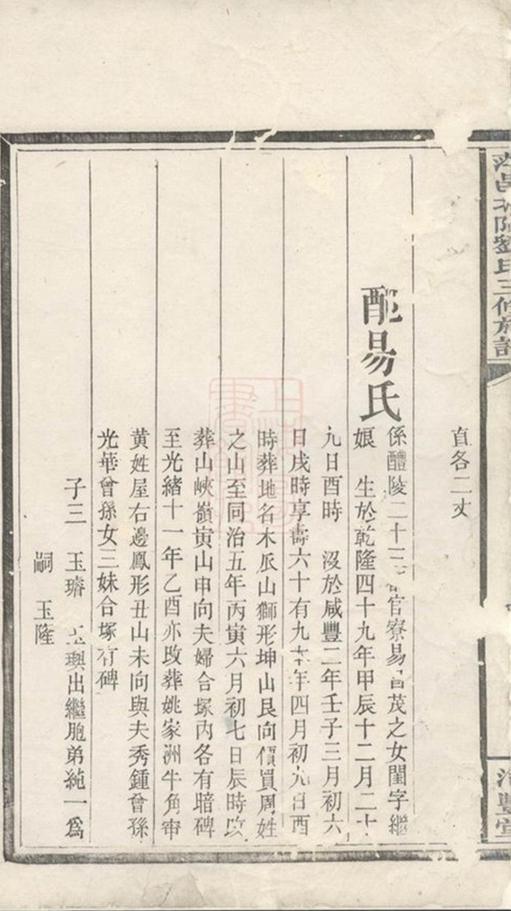 劉氏三修族譜
直各二丈
配易氏
係醴陵二十三官寮易昌茂之女閨字繼
娘 生於乾隆四十九年甲辰十二月二十
九日酉時 沒於咸豐二年壬子三月初六
日戌時享壽六十有九本年四月初九日酉
時葬地名木瓜山獅形坤山艮向價買周姓
之山至同治五年丙寅六月初七日辰時改
葬山峽嶺寅山申向夫婦合塚內各有暗碑
至光緒十一年乙酉亦改葬姚家洲牛角
黃姓屋右邊鳳形丑山未向與夫秀鍾曾孫
光華曾孫女三妹合塚有碑
子三 玉璿 玉璵出繼胞弟純一爲
嗣 玉隆